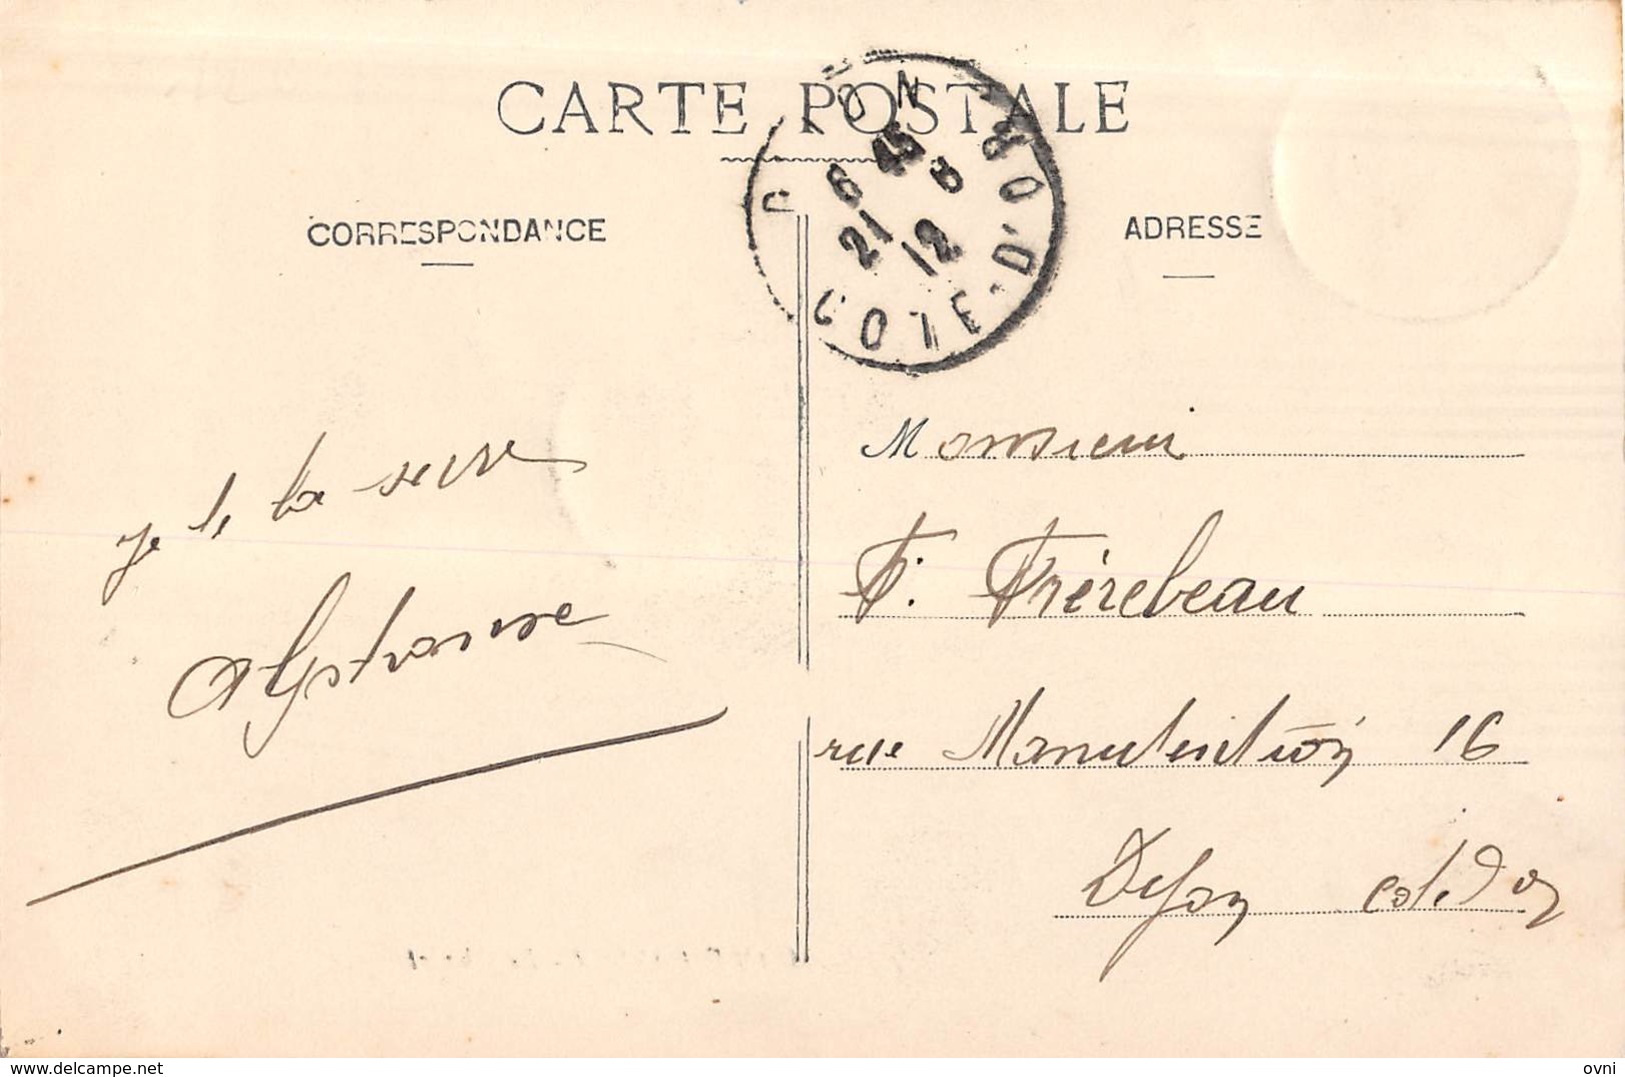 CARTE POSTALE
CORRESPONDANCE
ADRESSE
6 45
21 8
12
COTE-D'OR
je te la serre
Alphonse
Monsieur
F. Frérebeau
rue Manutention 16
Dijon
www.delcampe.net
ovni